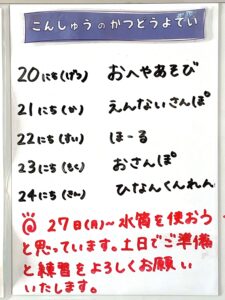 こんしゅうのかつどうよてい
20にち(げつ) おへやあそび
21にち(か) えんないさんぽ
22にち(すい) ほーる
23にち(もく) おさんぽ
24にち(きん) ひなんくんれん
27日(月)〜水筒を使おう
と思っています。土日でご準備
と練習をよろしくお願い
いたします。